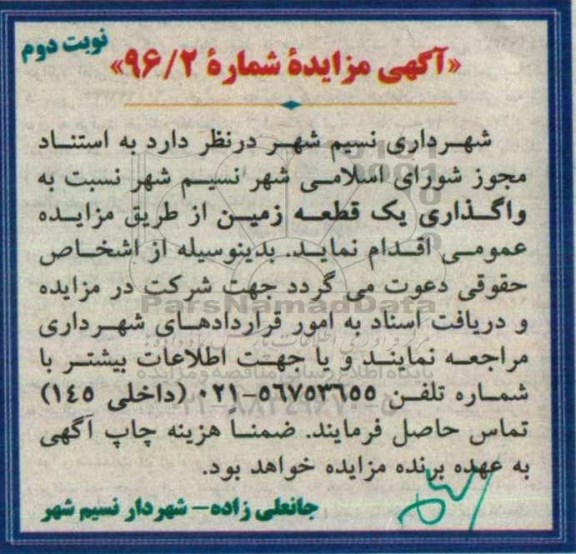 نوبت دوم
«آگهی مزایدهٔ شمارهٔ ۹۶/۲»
شهرداری نسیم شهر درنظر دارد به استناد
مجوز شورای اسلامی شهر نسیم شهر نسبت به
واگذاری یک قطعه زمین از طریق مزایده
عمومی اقدام نماید. بدینوسیله از اشخاص
حقوقی دعوت می گردد جهت شرکت در مزایده
و دریافت اسناد به امور قراردادهای شهرداری
مراجعه نمایند و یا جهت اطلاعات بیشتر با
شماره تلفن ۵۶۷۵۳۶۵۵-۰۲۱ (داخلی ۱۴۵)
تماس حاصل فرمایند. ضمناً هزینه چاپ آگهی
به عهده برنده مزایده خواهد بود.
جانعلی زاده– شهردار نسیم شهر
ParsNamadData
پایگاه اطلاع رسانی مناقصه و مزایده